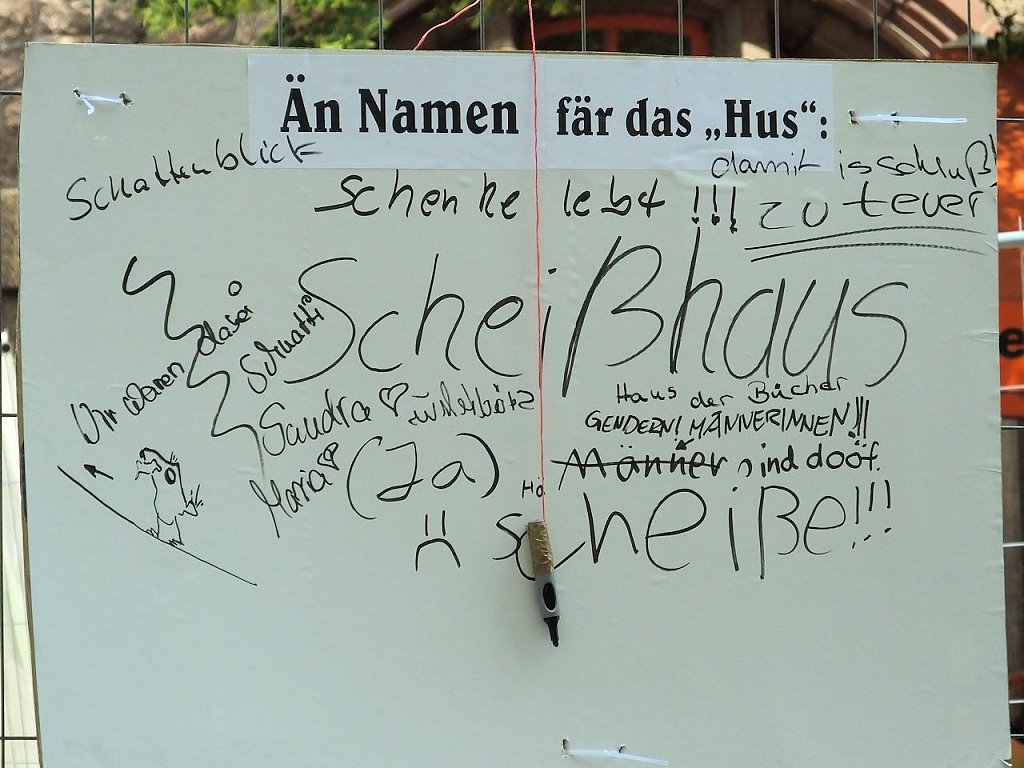 Än Namen fär das „Hus“:
Schattenblick
damit isschluß!
schenke lebt !!!
zu teuer
Scheißhaus
dabei
waren
Sandra ♡
Maria ♡
(Ja)
Haus der Bücher
GENDERN! MÄNNERINNEN!!!
Männer sind dööf.
scheiße!!!